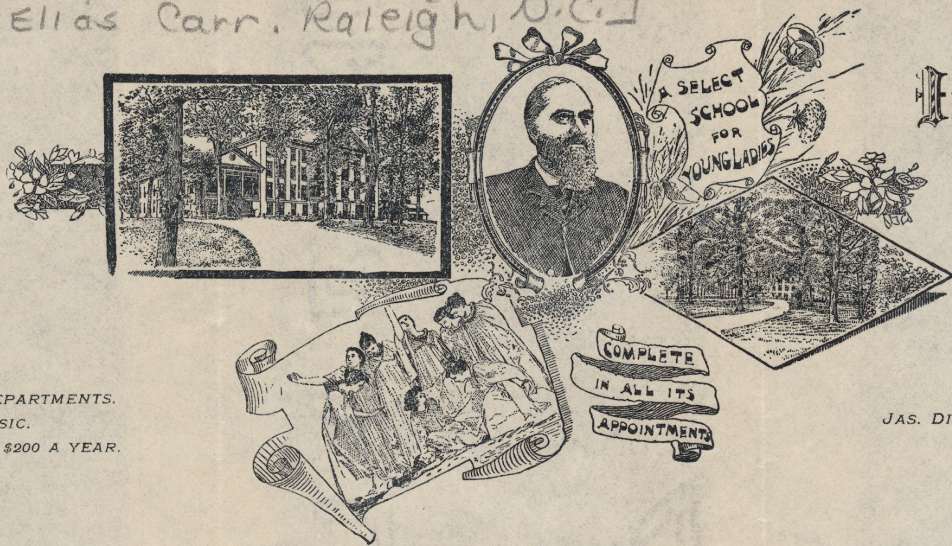 Elias Carr. Raleigh, N.C.]
A SELECT
SCHOOL
FOR
YOUNG LADIES
COMPLETE
IN ALL ITS
APPOINTMENTS
EPARTMENTS.
SIC.
$200 A YEAR.
JAS. DI